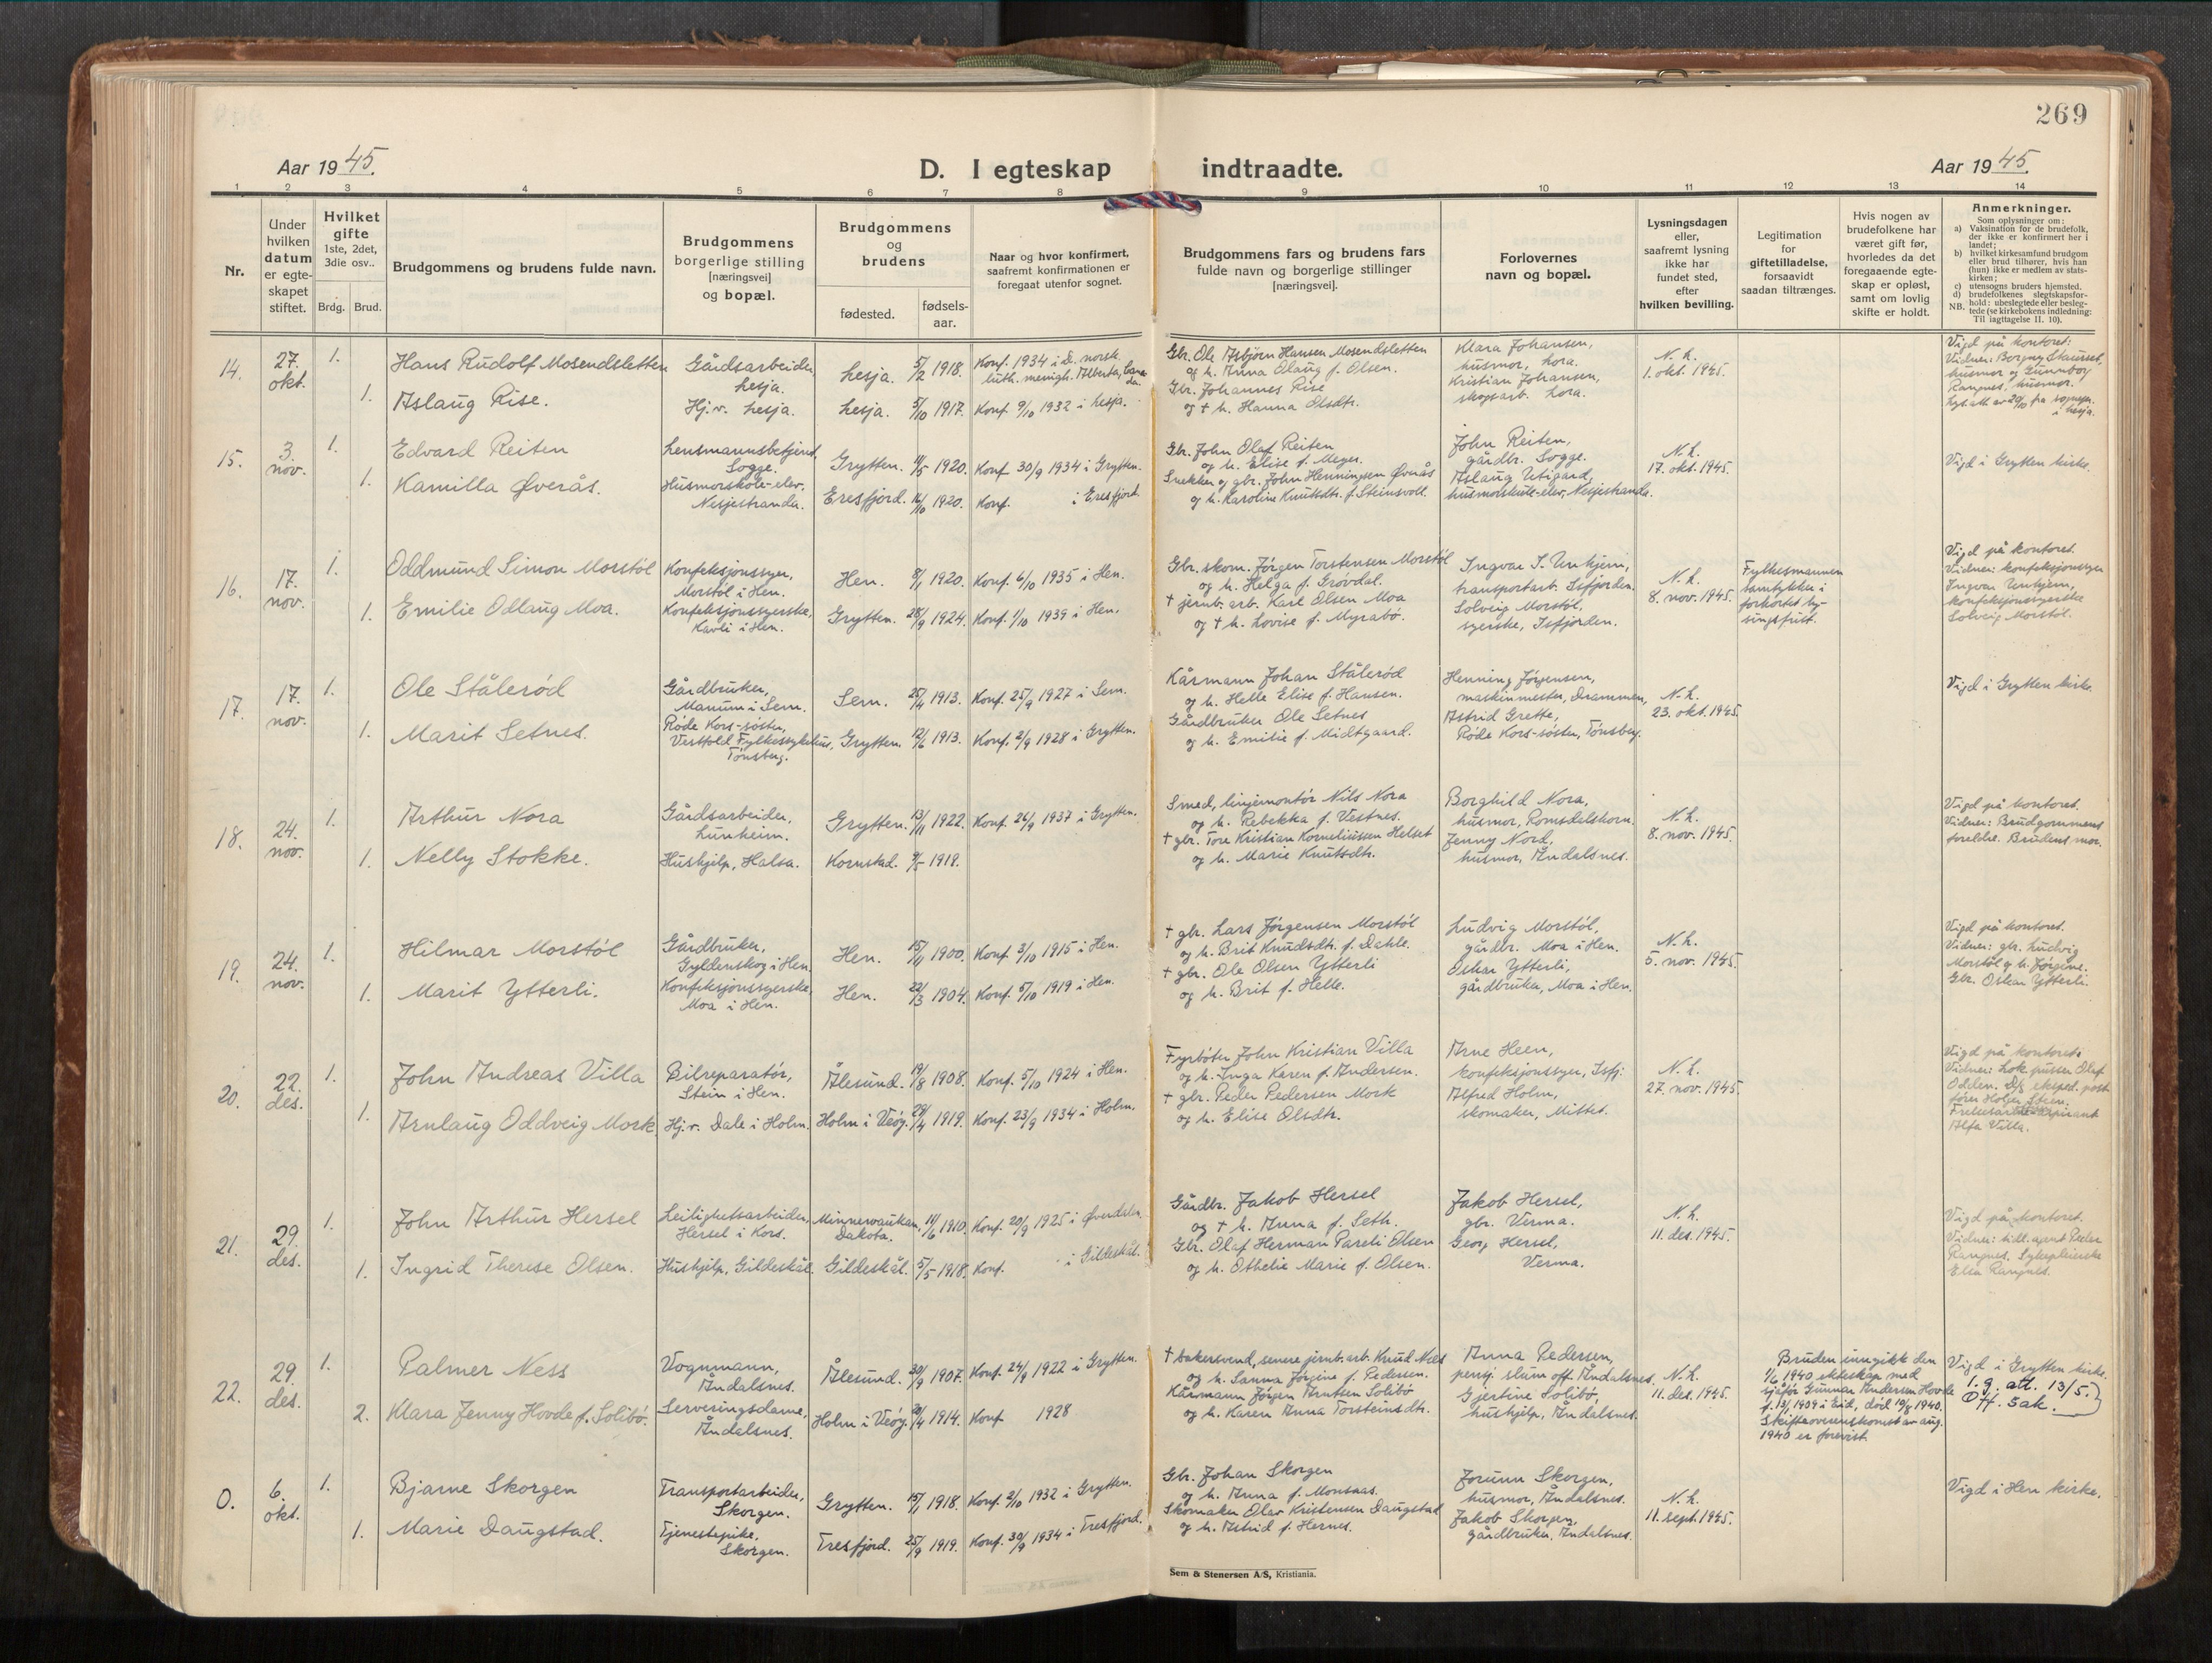 269
Aar 1945.
D. I egteskap indtraadte.
Aar 1945.
1 2 3 4 5 6 7 8 9 10 11 12 13 14
Nr.
Under hvilken datum er egte-skapet stiftet.
Hvilket gifte
1ste, 2det, 3die osv..
Brdg. Brud.
Brudgommens og brudens fulde navn.
Brudgommens borgerlige stilling [næringsvei] og bopæl.
Brudgommens og brudens
fødested. fødsels-aar.
Naar og hvor konfirmert, saafremt konfirmationen er foregaat utenfor sognet.
Brudgommens fars og brudens fars fulde navn og borgerlige stillinger [næringsvei].
Forlovernes navn og bopæl.
Lysningsdagen eller, saafremt lysning ikke har fundet sted, efter hvilken bevilling.
Legitimation for giftetilladelse, forsaavidt saadan tiltrænges.
Hvis nogen av brudefolkene har været gift før, hvorledes da det foregaaende egte-skap er opløst, samt om lovlig skifte er holdt.
Anmerkninger.
Som oplysninger om:
a) Vaksination for de brudefolk, der ikke er konfirmert her i landet;
b) hvilket kirkesamfund brudgom eller brud tilhører, hvis han (hun) ikke er medlem av stats-kirken;
c) utensogns bruders hjemsted.
d) brudefolkenes slegtskapsfor-hold: ubeslegtede eller besleg-tede (se kirkebokens indledning: Til iagttagelse II. 10).
NB.
14. 27. okt. 1. Hans Rudolf Mosendsletten
Gårdsarbeider, Lesja.
Lesja. 5/2 1918. Konf. 1934 i D. norsk luth. menigh. Alberta, Canada.
Gbr. Ole Asbjørn Hansen Mosendsletten
og h. Anna Olaug f. Olsen.
Klara Johansen, husmor, Lora.
N. h. 1. okt. 1945.
Vigd på kontoret:
Vidner: Borgny
husmor og Gunnborg
Rangnes, husmor.
1. Aslaug Rise.
Hj.v. Lesja.
Lesja. 5/10 1917. Konf. 9/10 1932 i Lesja.
Gbr. Johannes Rise
og † h. Hanna Olsdtr.
Kristian Johansen, skogsarb. Lora.
Lys.att. av 20/10 fra sognepr. i Lesja.
15. 3. nov. 1. Edvard Reiten
Lensmannsbetjent, Sogge.
Grytten. 11/5 1920. Konf 30/9 1934 i Grytten.
Gbr. John Olaf Reiten
og h. Elise f. Meyer.
John Reiten, gårdbr. Sogge.
N. h. 17. okt. 1945.
Vigd i Grytten kirke.
1. Kamilla Øverås.
Husmorskole-elev, Nesjestranda.
Eresfjord. 14/10 1920. Konf. i Eresfjord.
Snekker og gbr. John Henningsen Øverås
og h. Karoline Knutsdtr. f. Steinsvoll.
Aslaug Utigard, husmorskole-elev, Nesjestranda.
16. 17. nov. 1. Oddmund Simon Morstøl
Konfeksjonssyer, Morstøl i Hen.
Hen. 8/1 1920. Konf. 6/10 1935 i Hen.
Gbr. skom. Jørgen Torstensen Morstøl
og h. Helga f. Grovdal.
Ingvar J. Unhjem, transportarb. Isfjorden.
N. h. 8. nov. 1945.
Fylkesmannen samtykker i forkortet ly-singsfrist.
Vigd på kontoret.
Vidner: konfeksjonssyer
Ingvar Unhjem,
konfeksjonssyerske
Solveig Morstøl.
1. Emilie Odlaug Moa.
Konfeksjonssyerske, Kavli i Hen.
Grytten. 28/9 1924. Konf. 1/10 1939 i Hen.
† jernb. arb. Karl Olsen Moa
og † h. Lovise f. Myrabø.
Solveig Morstøl, syerske, Isfjorden.
17. 17. nov. 1. Ole Stålerød
Gårdbruker, Manum i Sem.
Sem. 25/4 1913. Konf. 25/9 1927 i Sem.
Kårmann Johan Stålerød
og h. Helle Elise f. Hansen.
Henning Jørgensen, maskinmester, Drammen,
N. h. 23. okt. 1945.
Vigd i Grytten kirke.
1. Marit Setnes.
Røde Kors-søster, Vestfold Fylkessykehus, Tønsberg.
Grytten. 12/6 1913. Konf. 2/9 1928 i Grytten.
Gårdbruker Ole Setnes
og h. Emilie f. Midtgaard.
Astrid Grette, Røde Kors-søster, Tønsberg.
18. 24. nov. 1. Arthur Nora
Gårdsarbeider, Lunheim.
Grytten. 13/11 1922. Konf. 26/9 1937 i Grytten.
Smed, linjemontør Nils Nora
og h. Rebekka f. Vestnes.
Borghild Nora, husmor, Romsdalshorn.
N. h. 8. nov. 1945.
Vigd på kontoret.
Vidner: Brudgommens
foreldre. Brudens mor.
1. Nelly Stokke.
Hushjelp, Halsa.
Kornstad. 1918.
† gbr. Tore Kristian Korneliussen Helset
og h. Marie Knutsdtr.
Jenny Nord, husmor, Åndalsnes.
19. 24. nov. 1. Hilmar Morstøl
Gårdbruker, Gyldenskog i Hen.
Hen. 15/11 1900. Konf. 3/10 1915 i Hen.
† gbr. Lars Jørgensen Morstøl
og h. Brit Knudsdtr. f. Dahle.
Ludvig Morstøl, gårdbr. Moa i Hen.
N. h. 5. nov. 1945.
Vigd på kontoret.
Vidner: gbr. Ludvig
Morstøl og h. Jørgine.
Gbr. Oskar Ytterli.
1. Marit Ytterli.
Konfeksjonssyerske Moa i Hen.
Hen. 22/3 1904. Konf. 5/10 1919 i Hen.
† gbr. Ole Olsen Ytterli
og h. Brit f. Helle.
Oskar Ytterli, gårdbruker, Moa i Hen.
20. 22. des. 1. John Andreas Villa
Bilreparatør, Stein i Hen.
Ålesund. 19/8 1908. Konf. 5/10 1924 i Hen.
Fyrbøter John Kristian Villa
og h. Inga Karen f. Andersen.
Arne Heen, konfeksjonssyer, Isfj.
N. h. 27. nov. 1945.
Vigd på kontoret.
Vidner: Lok.pusser Olaf
Odden. D/s eksped. post
fører Holger Steen.
Frelsesarme-aspirant
Alfa Villa.
1. Arnlaug Oddveig Mork.
Hj.v. Dale i Holm.
Holm i Veøy. 29/4 1919. Konf. 23/9 1934 i Holm.
† gbr. Peder Pedersen Mork
og h. Elise Olsdtr.
Alfred Holm, skomaker, Mittet.
21. 29. des. 1. John Arthur Hersel
Leilighetsarbeider, Hersel i Kors.
Minnewaukan, Dakota. 14/6 1910. Konf. 20/9 1925 i Øverdalen.
Gårdbr. Jakob Hersel
og † h. Anna f. Seth.
Jakob Hersel, gbr. Verma.
N. h. 11. des. 1945.
Vigd på kontoret.
Vidner: Peder
Rangnes. Sykepleierske
Elsa Rangnes.
1. Ingrid Therese Olsen.
Hushjelp, Gildeskål.
Gildeskål. 5/5 1918. Konf. i Gildeskål.
Gbr. Olaf Herman Pareli Olsen
og h. Othelie Marie f. Olsen.
Georg Hersel, Verma.
22. 29. des. 1. Palmer Ness
Vognmann, Åndalsnes.
Ålesund. 30/9 1907. Konf. 24/9 1922 i Grytten.
† bakersvend, senere jernb. arb. Knud Ness
og h. Sanna Jørgine f. Pedersen.
Anna Pedersen, pensj. slum off. Åndalsnes.
N. h. 11. des. 1945.
Bruden inngikk den 1/6 1940 ekteskap med sjåfør Gunnar Andersen Hovde f. 13/1 1904 i Eid, død 19/8 1940. Skifteoverenskomst av aug. 1940 er forevist.
Vigd i Grytten kirke.
1. g. att. 13/5.
Off. sak.
2. Klara Jenny Hovde f. Solibø.
Serveringsdame, Åndalsnes.
Holm i Veøy. 20/4 1914. Konf 1928
Kårmann Jørgen Arntsen Solibø
og h. Karen Anna Torsteinsdtr.
Gjertine Solibø, hushjelp, Åndalsnes.
0. 6. okt. 1. Bjarne Skorgen
Transportarbeider, Skorgen.
Grytten. 15/1 1918. Konf. 2/10 1932 i Grytten.
Gbr. Johan Skorgen
og h. Anna f. Monsaas.
Jorunn Skorgen, husmor, Åndalsnes.
N. h. 11. sept. 1945.
Vigd i Hen kirke.
1. Marie Daugstad.
Tjenestepike, Skorgen.
Tresfjord. 25/9 1919. Konf. 30/9 1934 i Tresfjord.
Skomaker Olav Kristensen Daugstad
og h. Astrid f. Hernes.
Jakob Skorgen, gårdbruker, Åndalsnes.
Sem & Stenersen A/S, Kristiania.